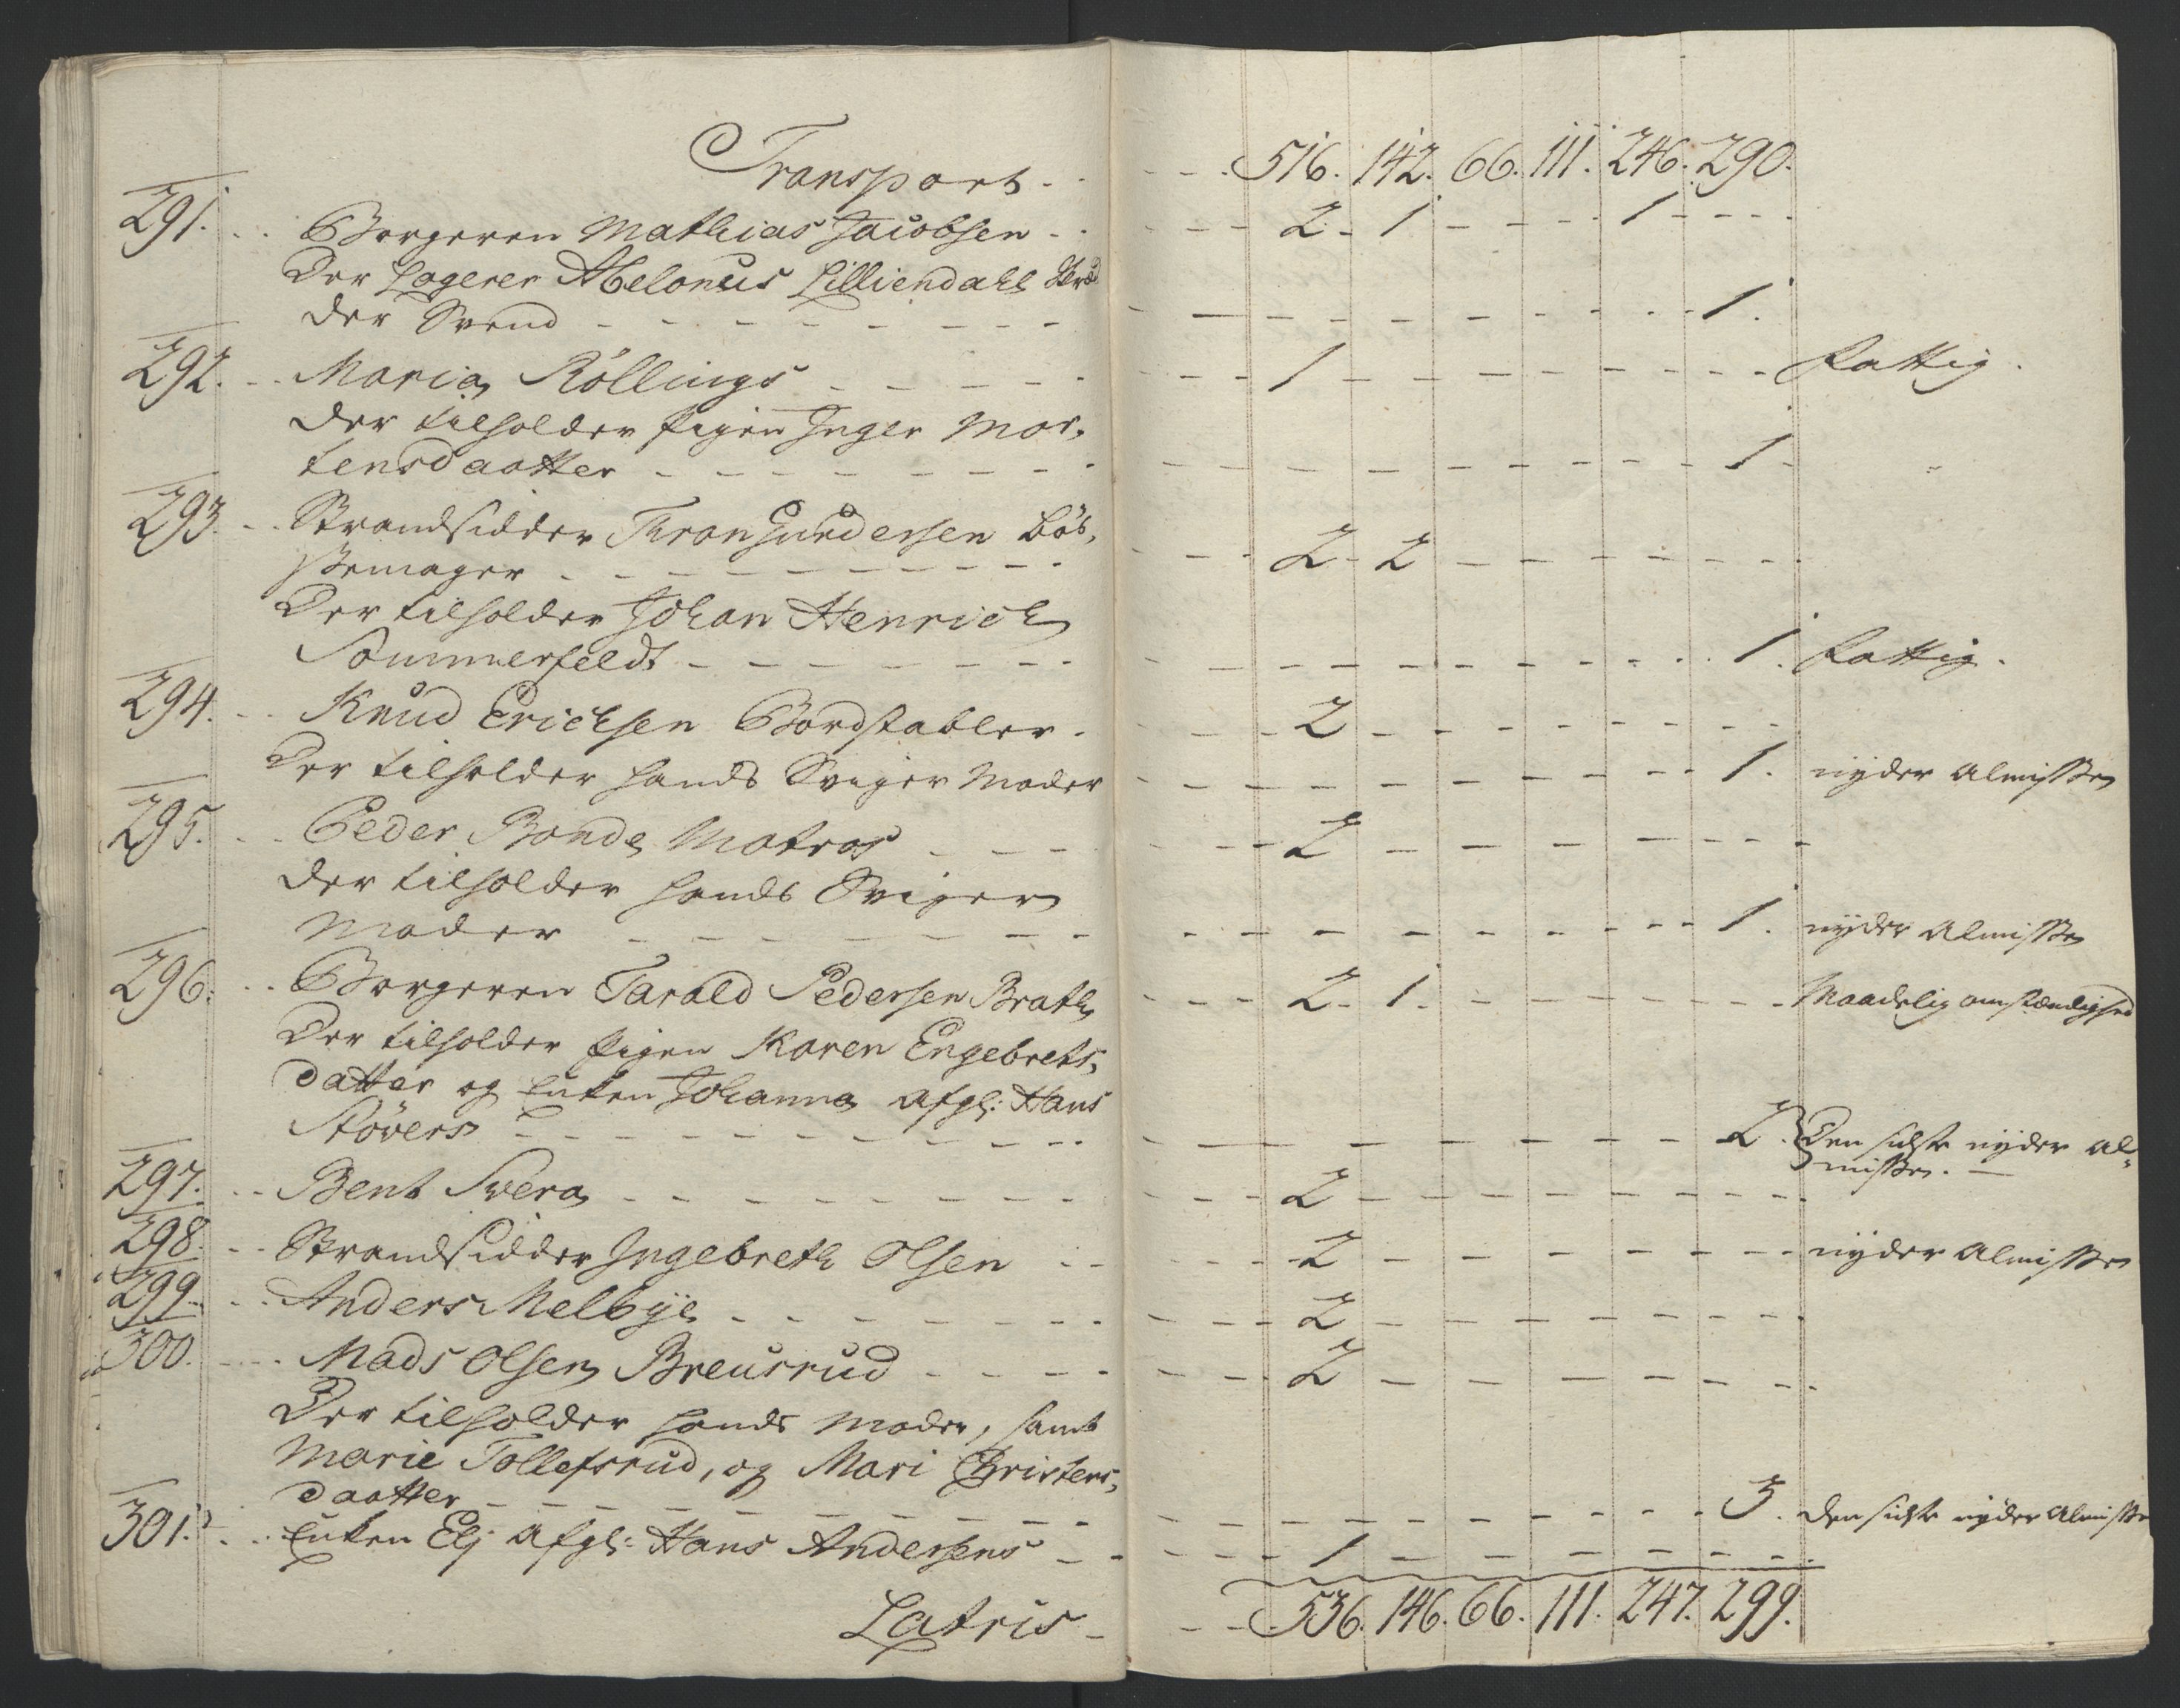 Transport - - - - - 516. 142. 66. 111. 246. 290.
291. - - Borgeren Mathias Jacobsen - - - - - 2 - 1 - - - - 1 - - - -
Der Logerer Abelonus Lilliendahl Skræd
der Svend - - - - - - - - - 1.
292. - - Maria Röllings - - - - - 1 - - - - - - - fattig.
der tilholder Pigen Inger Mor,
tensdaatter - - - - - - - - - 1 -
293. - - Strandsidder Tron Gundersen Bös,
semager - - - - - - - 2 - 2 - - - - - -
Der tilholder Johan Henrich
Sommerfeldt - - - - - - - - - 1. fattig.
294. - - Knud Erichsen Bordstabler - - - 2 - - - - - -
Der tilholder hands Sviger Moder - - - - - - 1. nyder Almisse
295. - - Peder Bonde Matros - - - - - 2 - - - - - -
der tilholder hands Sviger
Moder - - - - - - - - - 1. nyder Almisse
296. - - Borgeren Tarald Pedersen Brath - - - 2 - 1. - - - - - Maadelig omstændighed
Der tilholder Pigen Karen Engebrets,
datter og Enken Johanna afgl: Hans
Stövers - - - - - - - - - 2. Den sidste nyder Al-
misse. -
297. - - Bent Svera - - - - - - 2 - - - - - -
298. - - Strandsidder Ingebreth Olsen - - - - 2 - - - - - - nyder Almisse
299. - - Anders Melbye - - - - - - 2 - - - - - -
300. - - Mads Olsen Breusrud - - - - - 2 - - - - - -
Der tilholder hands Moder, samt
Marie Tollefsrud, og Mari Christens,
daatter - - - - - - - - - 3. den sidste nyder Almisse
301. - - Enken Elj afgl: Hans Andersens - - - - 1 - - - - - -
Latris - - - - 536. 146. 66. 111. 247. 299.